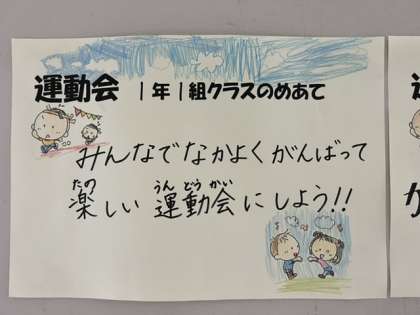 運動会 1年1組クラスのめあて
みんなでなかよくがんばって
たの うんどうかい
楽しい 運動会にしよう!!